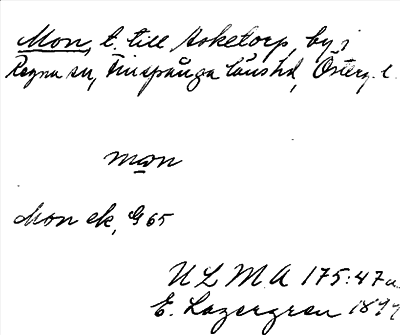 Mon, t. till Asketorp, by i
Regna sn, Finspånga läns hd, Österg. l.
mo̲n
Mon ek, G 65
U L M A 175:47a
E. Lagergren